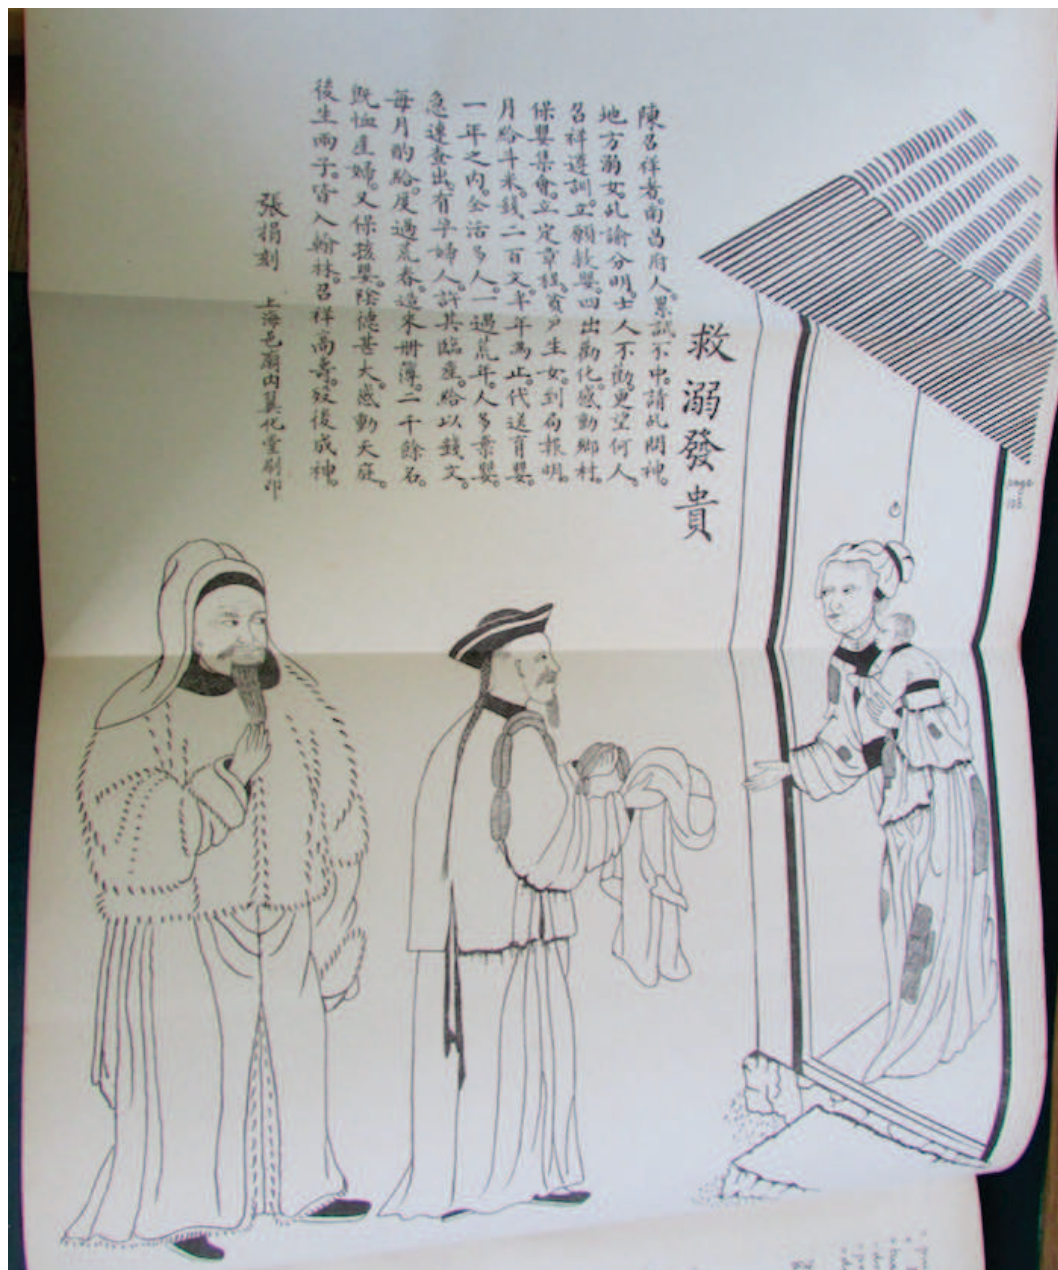 救溺發貴
陳召祥者。南昌府人。累試不中。請乩問神。
地方溺女。乩諭分明。士人不勸。更望何人。
召祥遵訓。立願救嬰。四出勸化。感動鄉村。
保嬰集會。立定章程。貧戶生女。到局報明。
月給斗米。錢二百文。半年為止。代送育嬰。
一年之內。全活多人。一遇荒年。人多棄嬰。
急速查出。有孕婦人。許其臨產。給以錢文。
每月酌給。度過荒春。造來冊簿。二千餘名。
既恤產婦。又保孩嬰。陰德甚大。感動天庭。
後生兩子。皆入翰林。召祥高壽。歿後成神。
張捐刻 上海邑廟內翼化堂刷印
page
103.